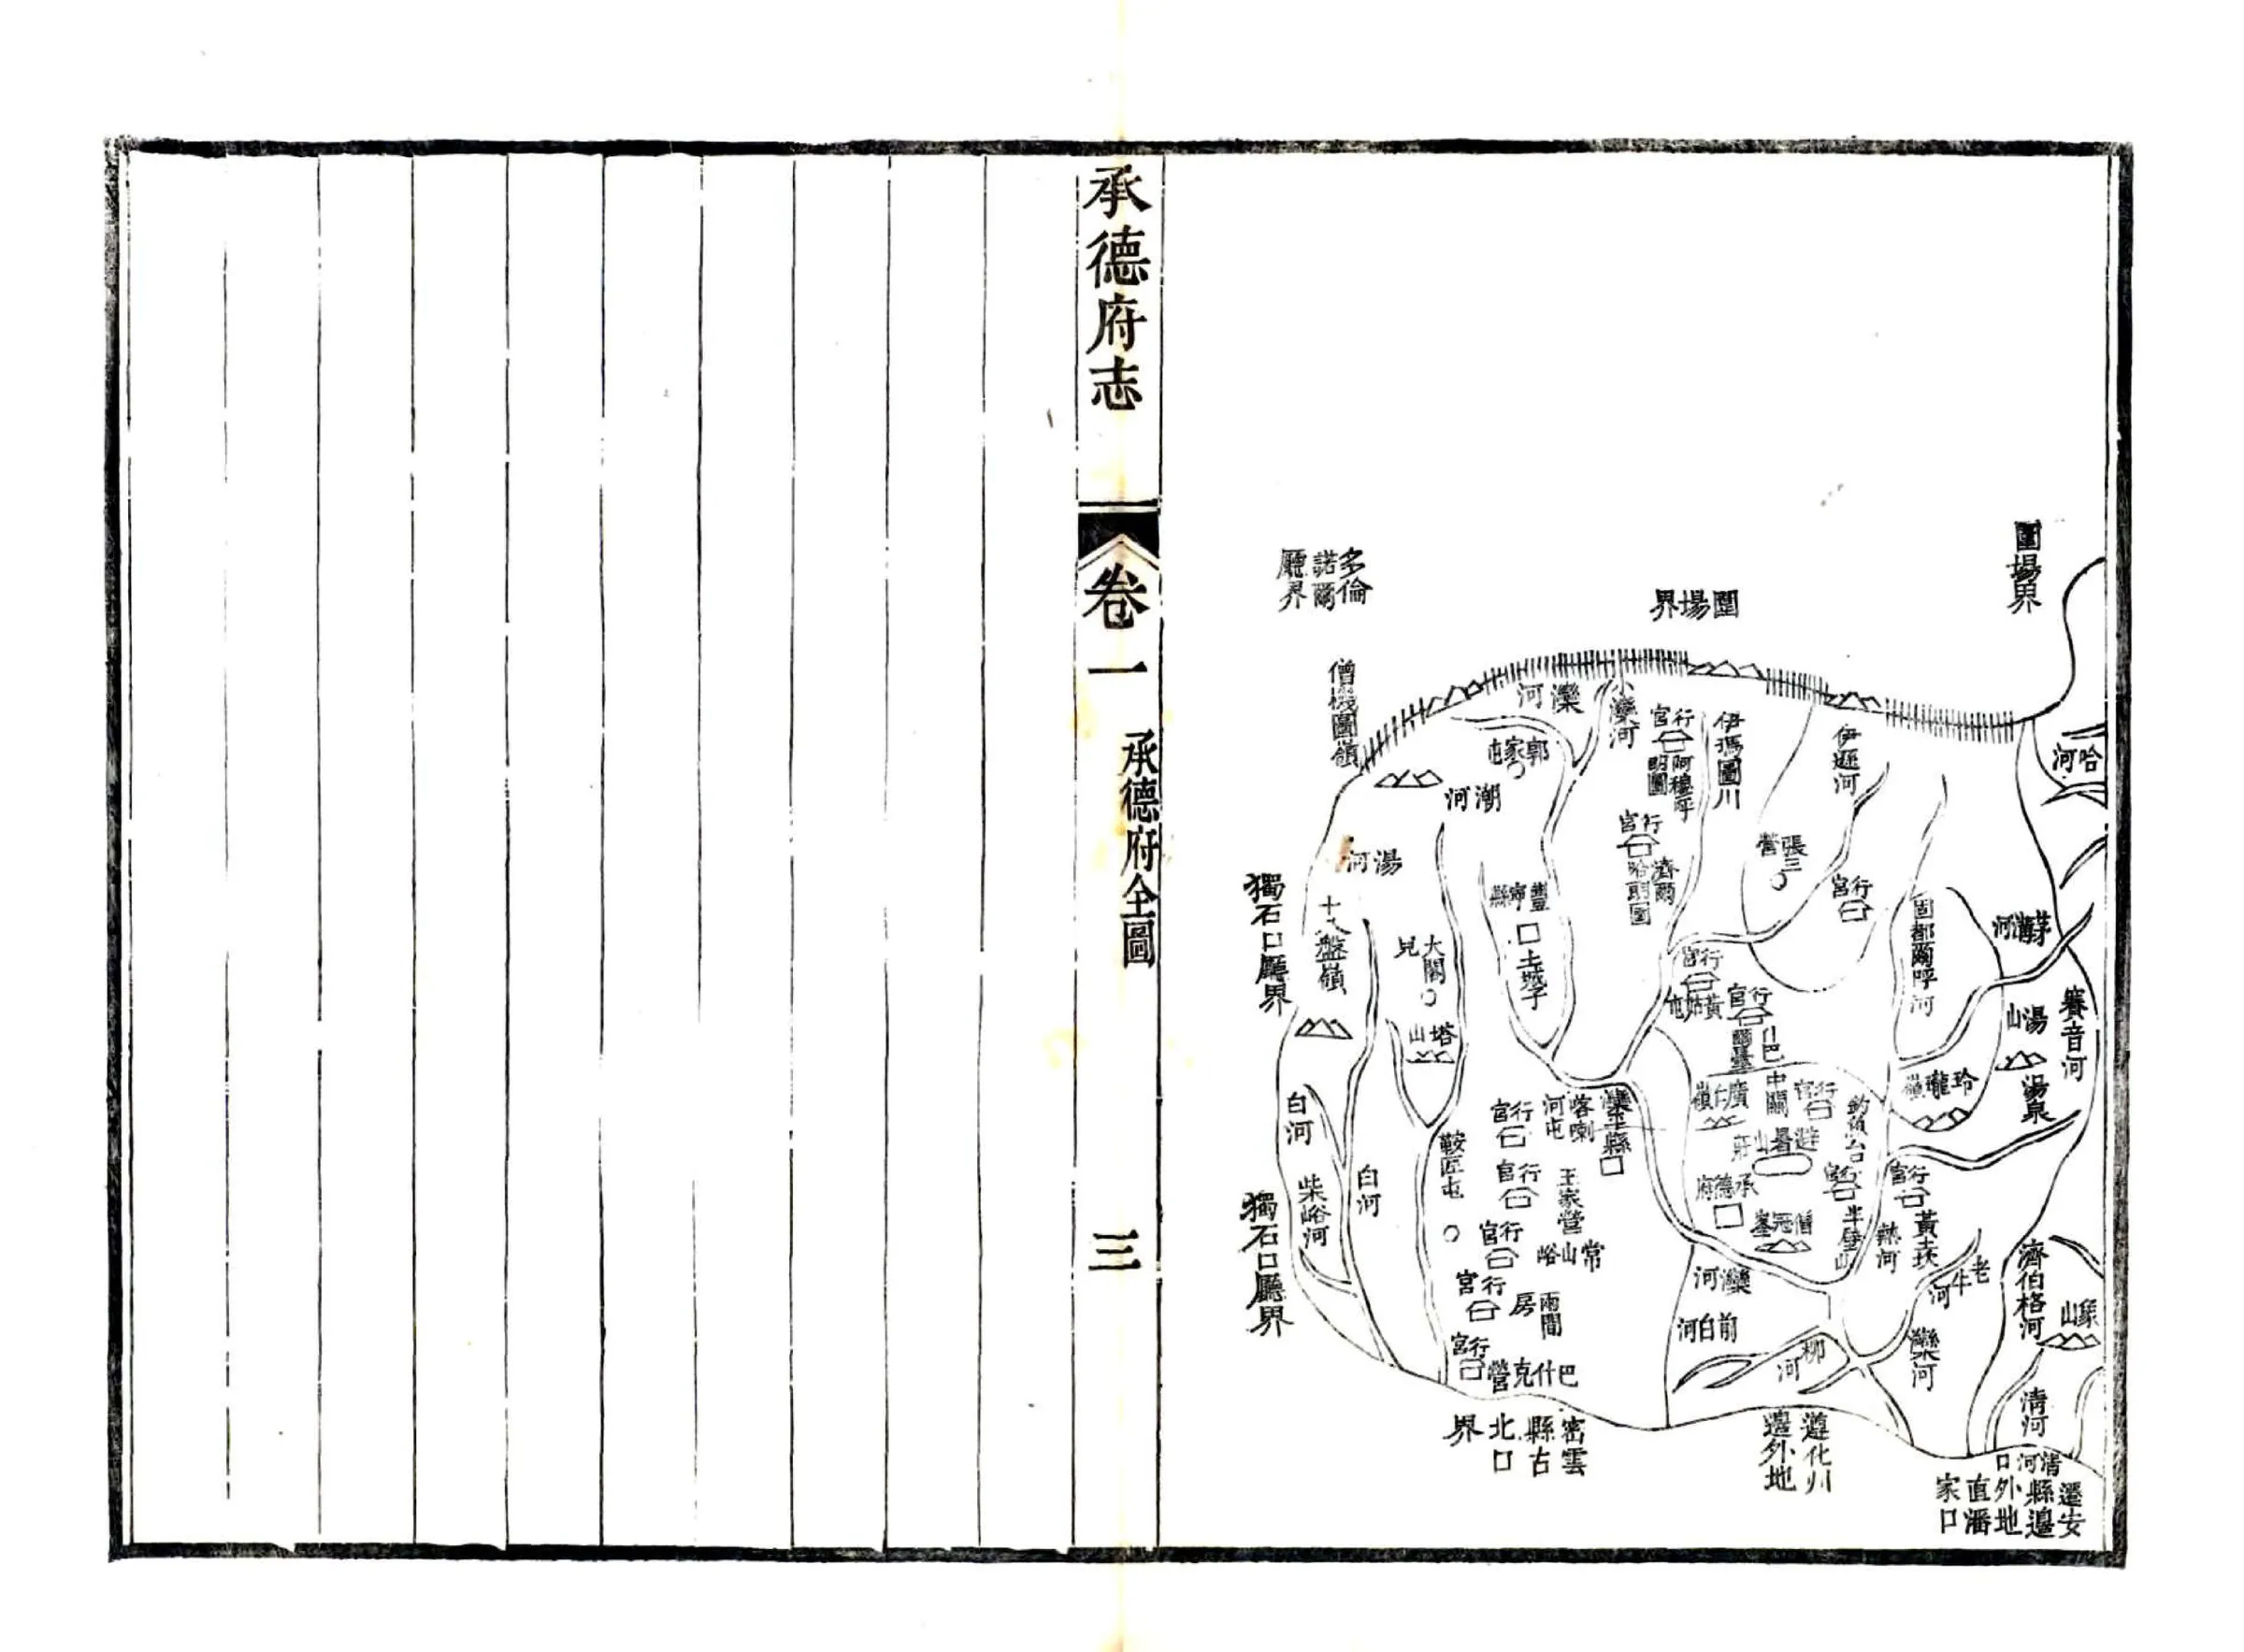 圍場界
哈河
茅溝河
賽音河
湯山
湯泉
玲瓏嶺
濟伯格河
象山
清河
遷安縣邊外地直潘家口
清河口
圍場界
伊遜河
固都爾呼河
行宮
張三營
伊瑪圖川
行宮
阿穆呼朗圖
小灤河
灤河
郭家屯
行宮
濟爾哈朗圖
行宮
黃姑屯
行宮
什巴爾臺
中關
行宮
廣仁嶺
避暑山莊
釣魚台
行宮
行宮
黃土坎
承德府
僧冠峯
半壁山
熱河
老牛河
灤河
灤河
前白河
柳河
遵化州邊外地
豐寧縣
土城子
灤平縣
喀喇河屯
行宮
王家營
行宮
常山峪
行宮
兩間房
行宮
巴什克營
行宮
密雲縣古北口界
多倫諾爾廳界
僧機圖嶺
潮河
湯河
十八盤嶺
大閣兒
塔山
鞍匠屯
白河
白河
柴峪河
獨石口廳界
獨石口廳界
承德府志
卷一
承德府全圖
三